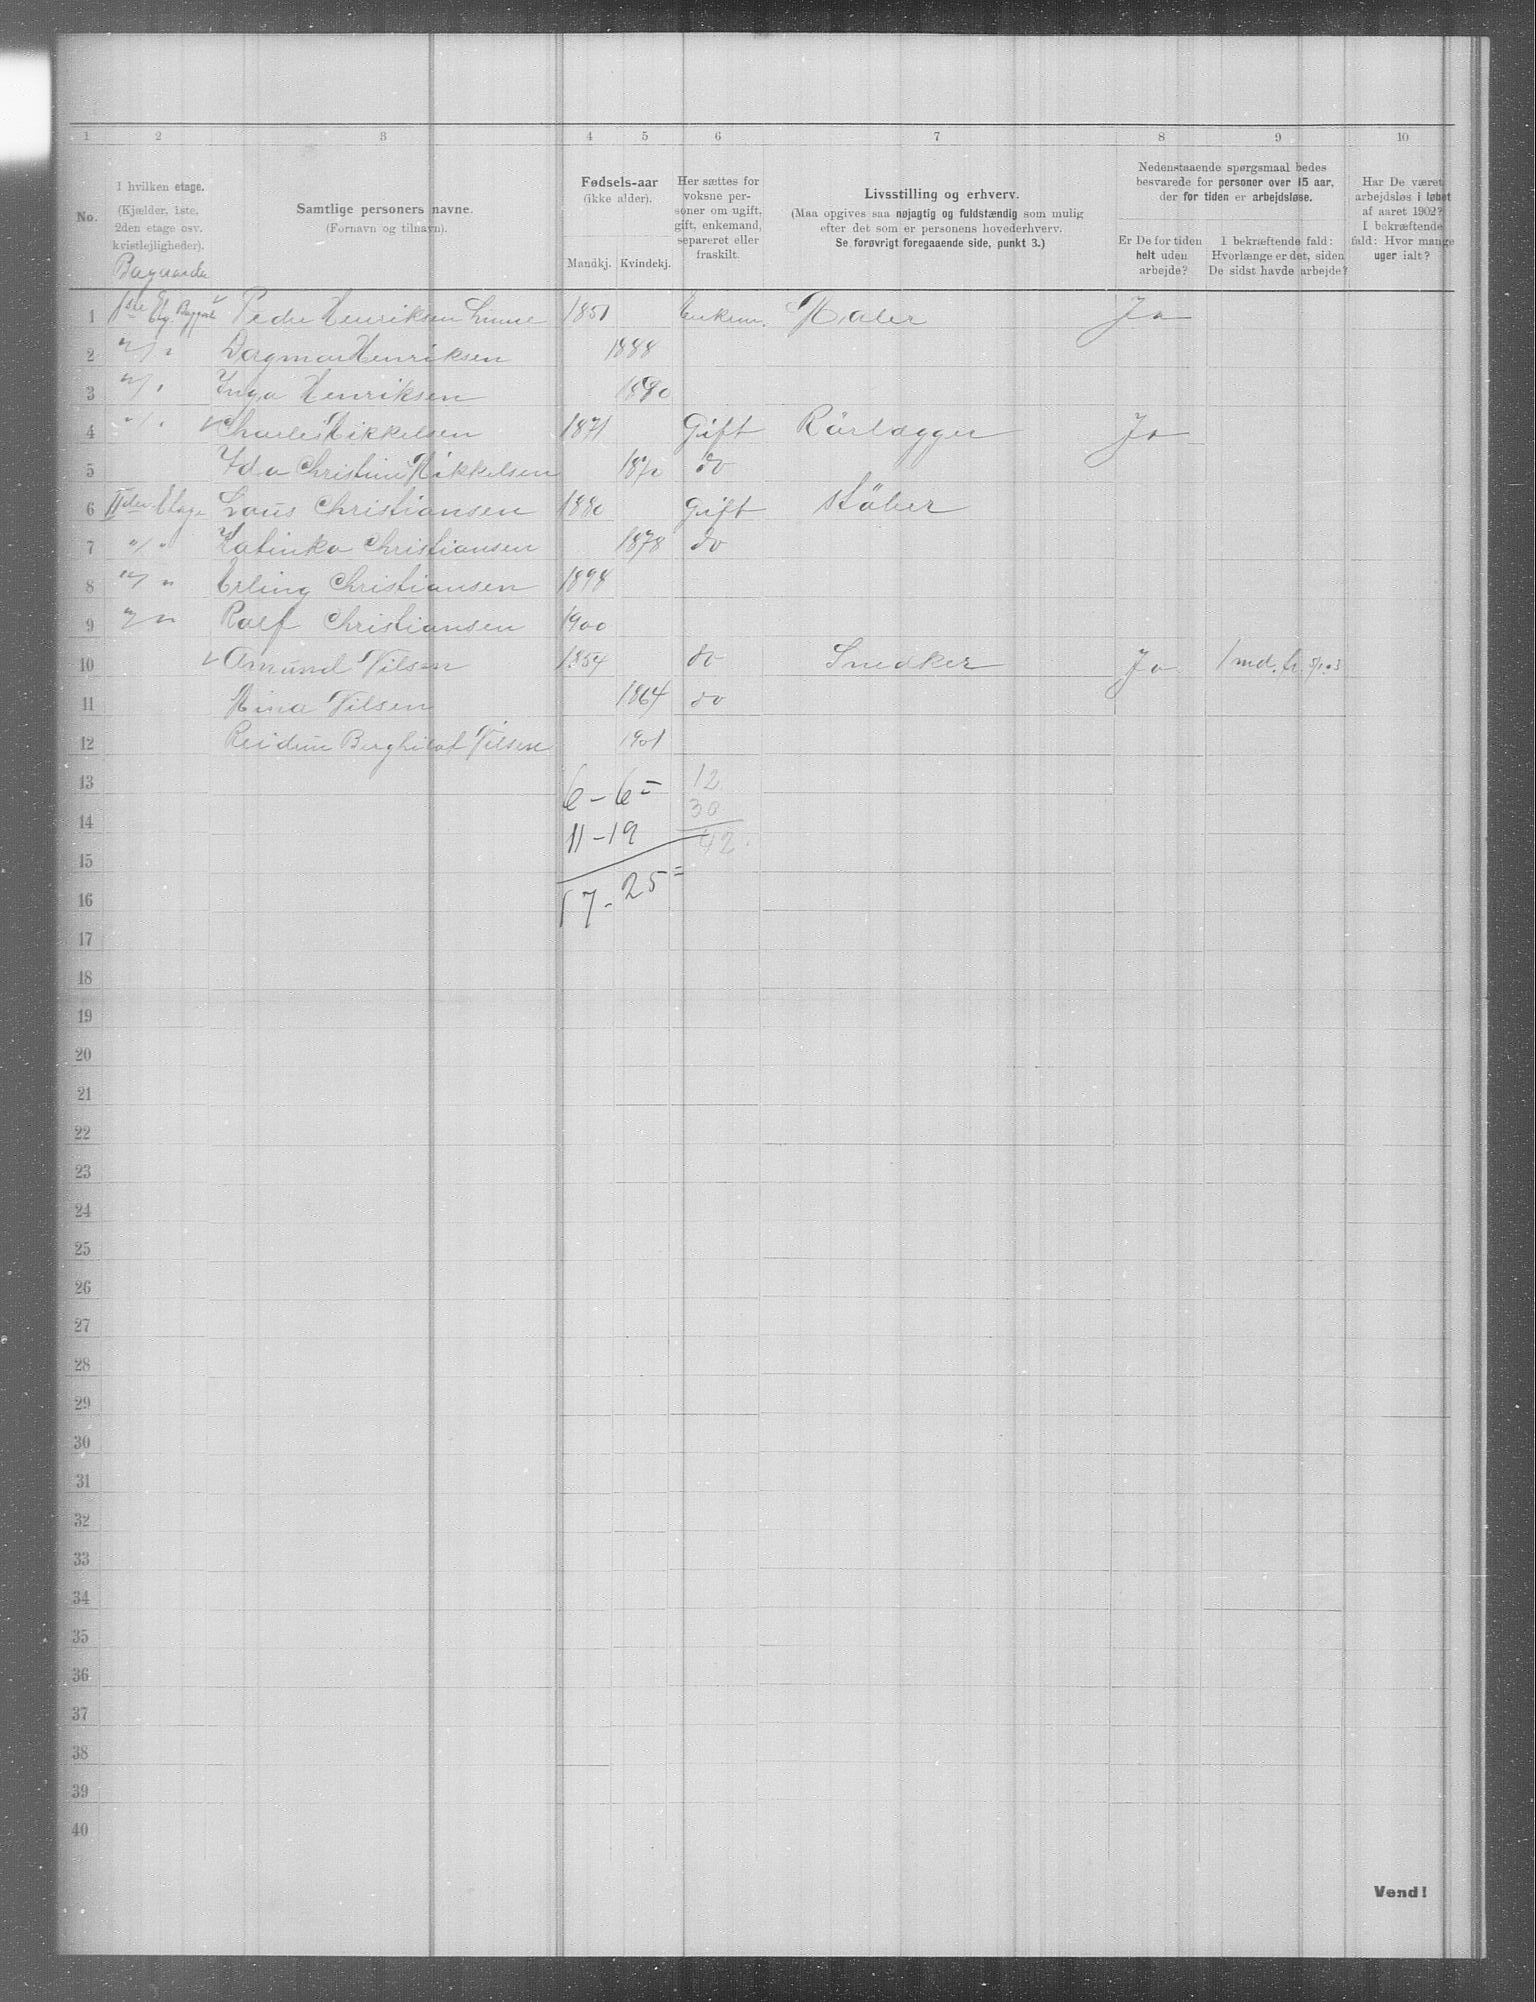 1 2 3 4 5 6 7 8 9 10
No.
I hvilken etage.
(Kjælder, 1ste,
2den etage osv.
kvistlejligheder).
Baggaarde
Samtlige personers navne.
(Fornavn og tilnavn).
Fødsels-aar
(ikke alder).
Mandkj. Kvindekj.
Her sættes for
voksne per-
soner om ugift,
gift, enkemand,
separeret eller
fraskilt.
Livsstilling og erhverv.
(Maa opgives saa nøjagtig og fuldstændig som mulig
efter det som er personens hovederhverv.
Se forøvrigt foregaaende side, punkt 3.)
Nedenstaaende spørgsmaal bedes
besvarede for personer over 15 aar,
der for tiden er arbejdsløse.
Er De for tiden
helt uden
arbejde?
I bekræftende fald:
Hvorlænge er det, siden
De sidst havde arbejde?
Har De været
arbejdsløs i løbet
af aaret 1902?
I bekræftende
fald: Hvor mange
uger ialt?
1 1ste Etg. Peder Henriksen 1851 Enkem. Maler Ja
2 " / " Dagmar Henriksen 1888
3 " / " Inga Henriksen 1890
4 " / " Charles Mikkelsen 1871 Gift Rörlægger Ja
5 Ida Christine Mikkelsen 1870 do
6 IIden Etage Laus Christiansen 1880 Gift Stöber
7 " / " Katinka Christiansen 1878 do
8 " / " Erling Christiansen 1898
9 " / " Ralf Christiansen 1900
10 Amund Nilsen 1854 do Snedker Ja 1 md. fr. 5/1 03
11 Mina Nilsen 1864 do
12 Reidun Berghilof Nilsen 1901
13 6 - 6 = 12
14 11 - 19 30
15 42
16 17 - 25 =
17
18
19
20
21
22
23
24
25
26
27
28
29
30
31
32
33
34
35
36
37
38
39
40
Vend!